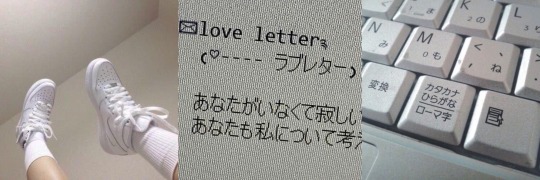 ✉love letter
(♡---- ラブレター)
あなたがいなくて寂しい
あなたも私について考え
K の
L
N み
M も
0
2
3
< 、
ね
変換
カタカナ
ひらがな
ローマ字